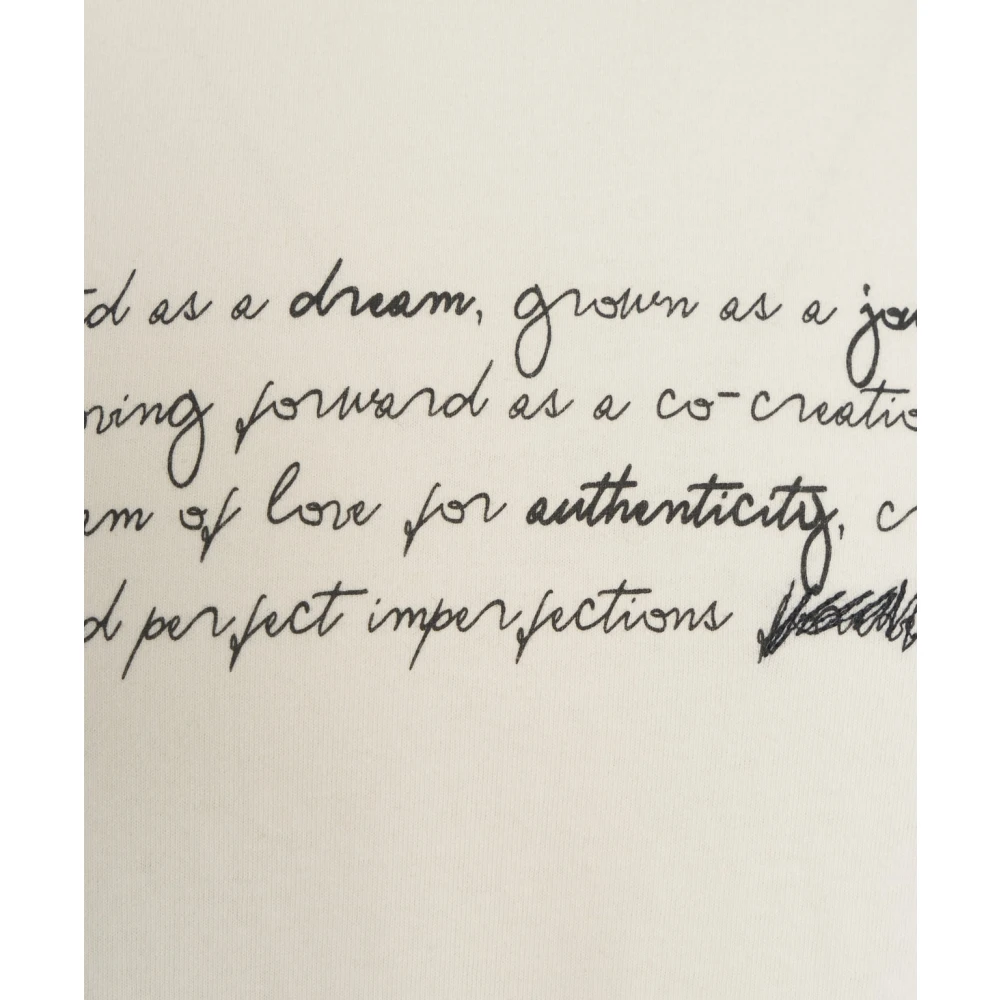 td as a dream, grown as a jou
oving forward as a co-creatio
em of love for authenticity, c
d perfect imperfections